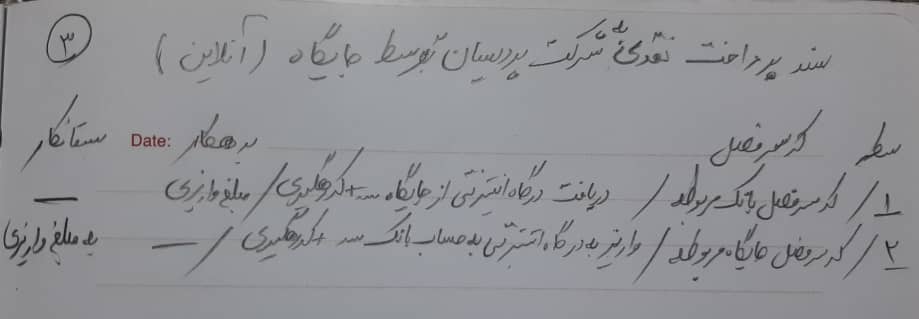 ۳
سند پرداخت نقدی به شرکت پردیسان توسط جایگاه (آنلاین)
سطر کد سرفصل بدهکار Date: بستانکار
۱/ کد سرفصل بانک مربوطه / دریافت درگاه اینترنتی از جایگاه ... + کد رهگیری / مبلغ واریزی —
۲/ کد سرفصل جایگاه مربوطه / واریز به درگاه اینترنتی به حساب بانک ... + کد رهگیری / — مبلغ واریزی